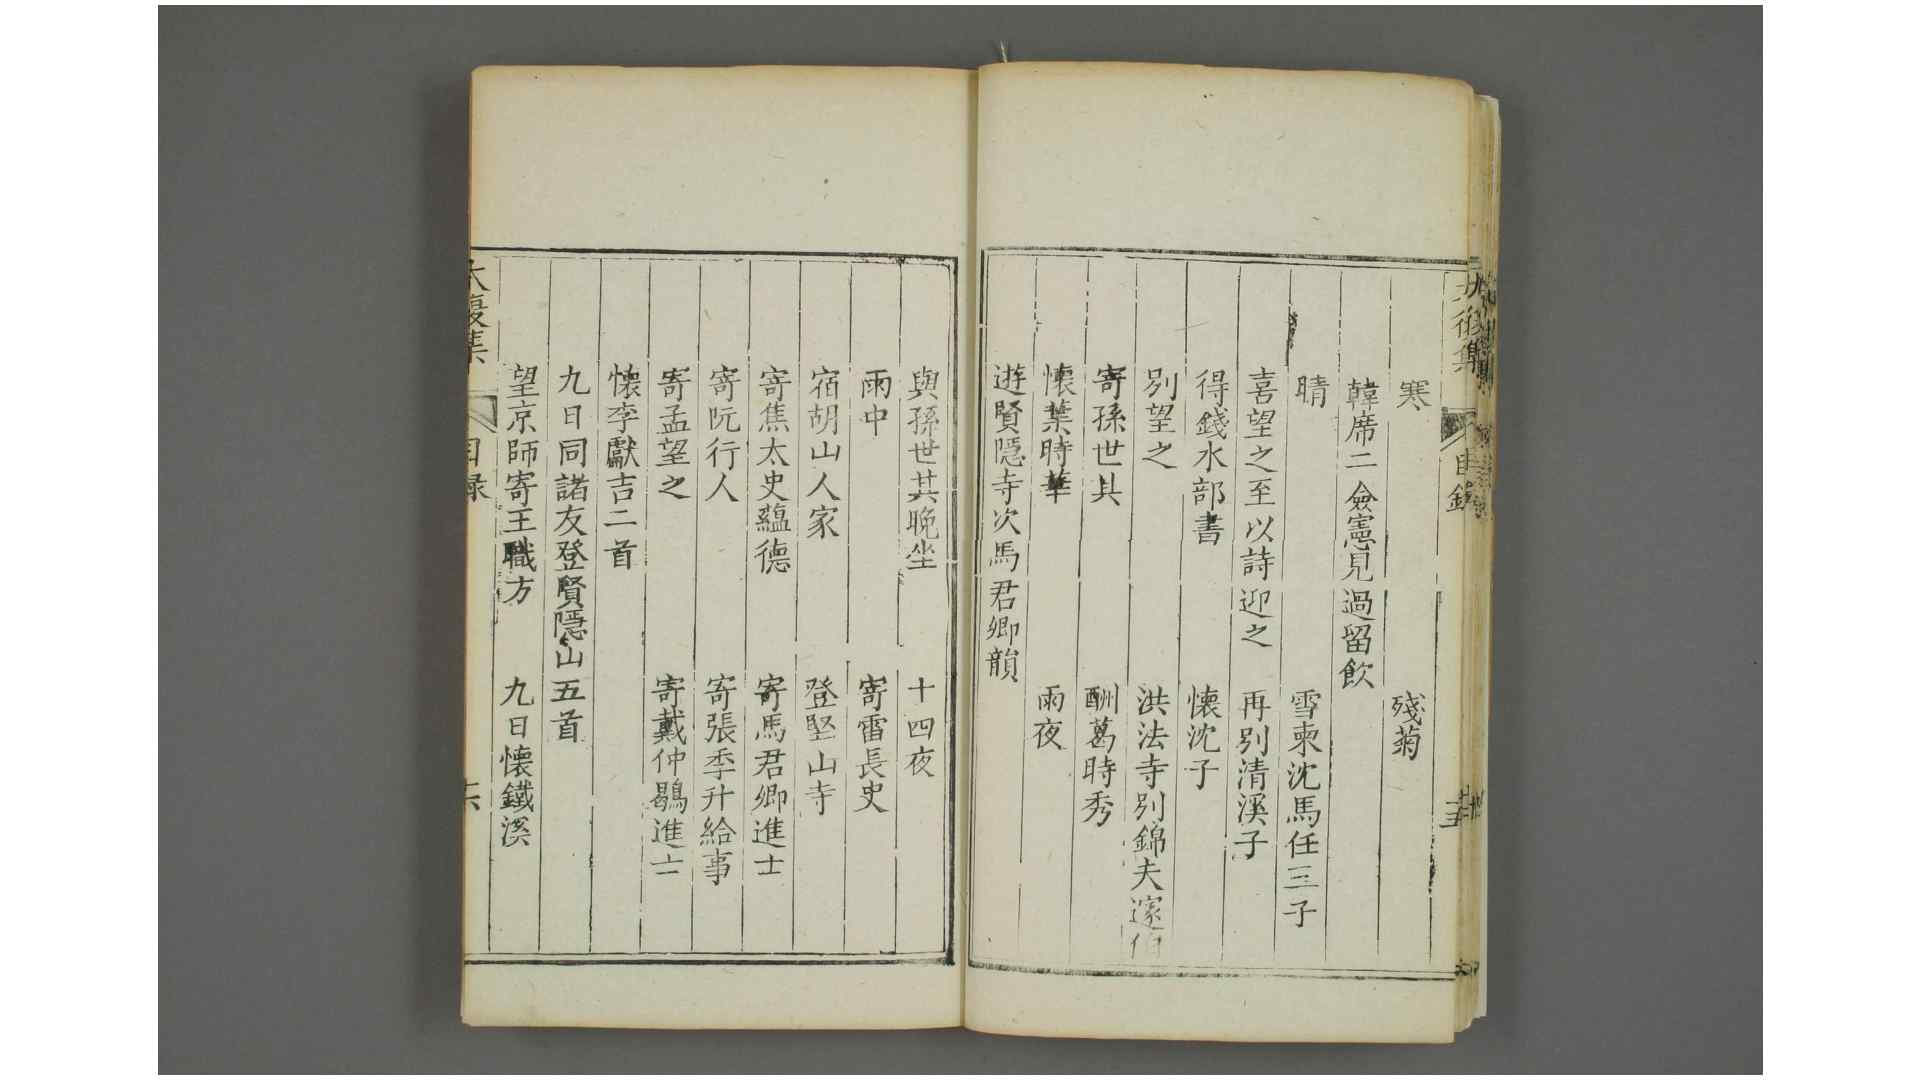 寒　殘菊
韓席二僉憲見過留飲
晴　雪柬沈馬任三子
喜望之至以詩迎之　再別清溪子
得錢水部書　懷沈子
別望之　洪法寺別錦夫邃伯
寄孫世其　酬葛時秀
懷葉時華　雨夜
遊賢隱寺次馬君卿韻
與孫世其晚坐　十四夜
雨中　寄雷長史
宿胡山人家　登堅山寺
寄焦太史蘊德　寄馬君卿進士
寄阮行人　寄張季升給事
寄孟望之　寄戴仲鶡進士
懷李獻吉二首
九日同諸友登賢隱山五首
望京師寄王職方　九日懷鐵溪
大復集　目錄